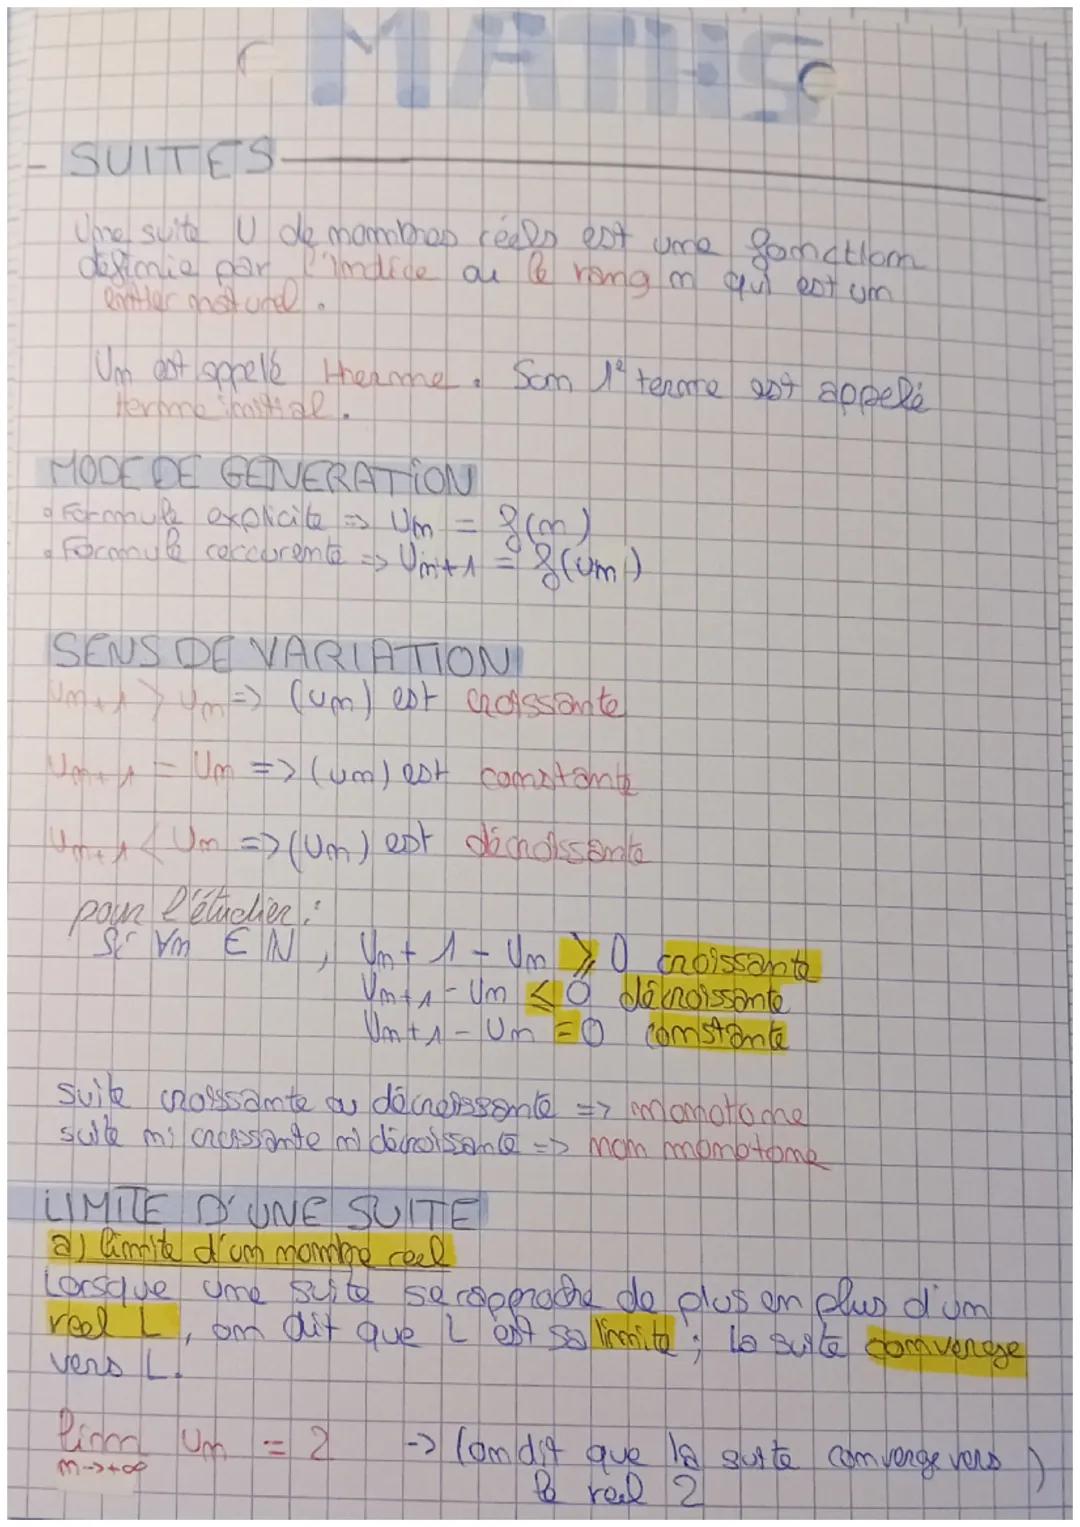 MATHS
- SUITES
Une suite U de nombres réels est une fonction
définie par l'indice ou le rang n qui est un
entier naturel.
Un est appelé therme. Son 1e terme est appelé
terme initial.
MODE DE GENERATION
• Formule explicite => Un = f(n)
• Formule reccurente => Un+1 = f(un)
SENS DE VARIATION
Un+1 > Un => (un) est croissante
Un+1 = Un => (un) est constante
Un+1 < Un => (Un) est décroissante
pour l'étudier :
Si ∀n ∈ N, Un+1 - Un ≥ 0 croissante
Un+1 - Un ≤ 0 décroissante
Un+1 - Un = 0 constante
Suite croissante ou décroissante => monotone
suite ni croissante ni décroissante => non monotone
LIMITE D'UNE SUITE
a) limite d'un nombre reel
Lorsque une suite se rapproche de plus en plus d'un
reel L, on dit que L est sa limite ; la suite converege
vers L.
lim Un = 2 -> (on dit que la suite converge vers )
n->+∞ le reel 2